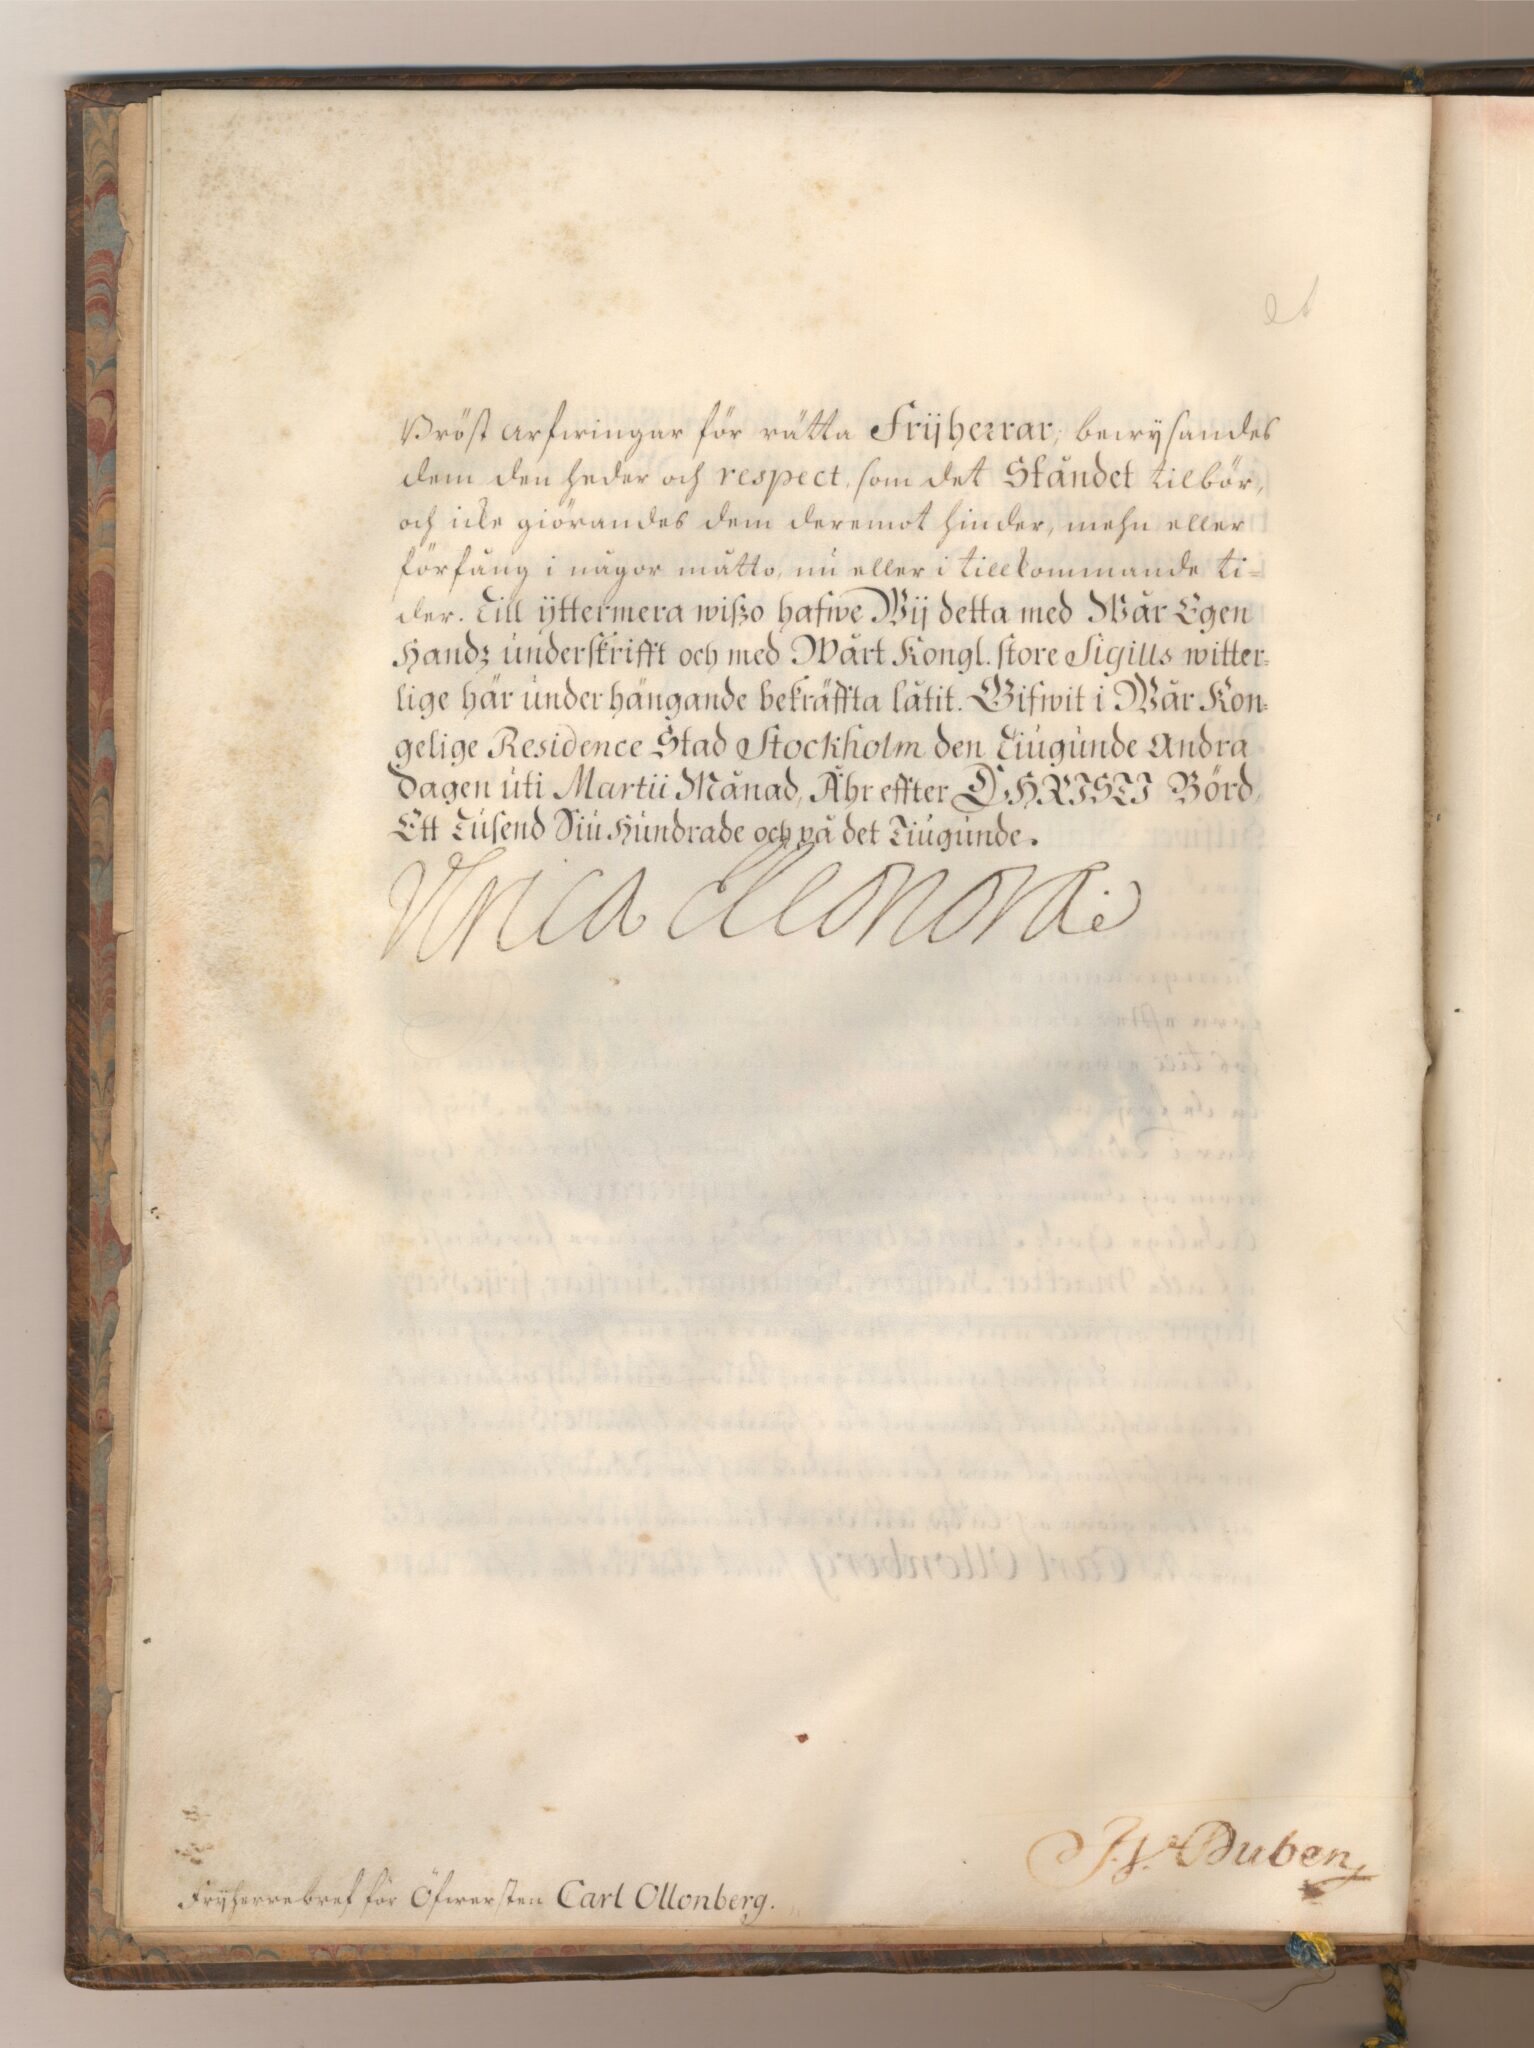 Bröst arfwingar för rätta Frijherrar, bewysandes
dem den heder och respect, som det Ståndet tilbör,
och icke giörandes dem deremot hinder, mehn eller
förfång i någor måtto, nu eller i tillkommande ti-
der. Till yttermera wißo hafwe Wij detta med Wår Egen
Handz underskrifft och med Wårt Kongl. store Sigills witter-
lige här under hängande bekräffta låtit. Gifwit i Wår Kon-
gelige Residence Stad Stockholm den Tiugunde Andra
Dagen uti Martii Månad, Åhr effter CHRISTI Börd,
Ett Tusend Siu Hundrade och på det Tiugunde.
Vlrica Eleonora
J. V. Duben
Fryherrebref för Öfwersten Carl Ollonberg.